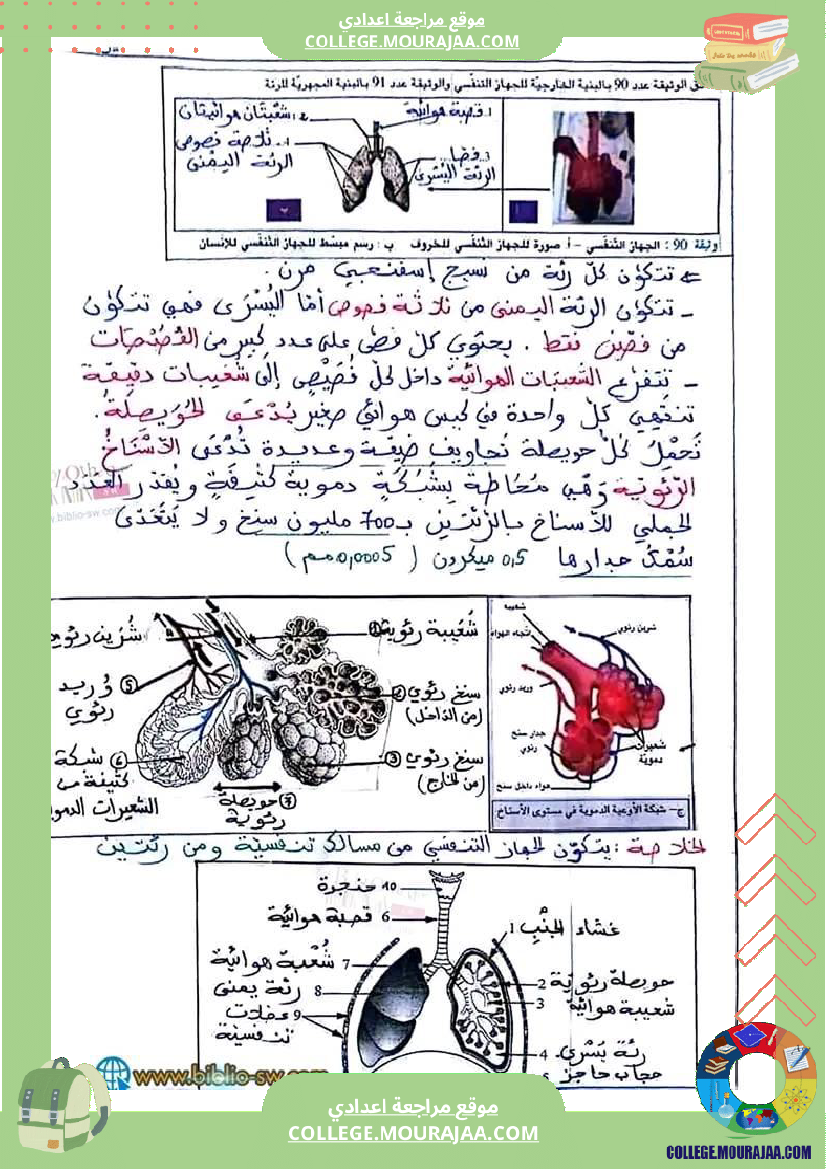 موقع مراجعة اعدادي
COLLEGE.MOURAJAA.COM
الوثيقة عدد 90 بالبنية الخارجية للجهاز التنفّسي والوثيقة عدد 91 بالبنية المجهريّة للرئة
1. قصبة هوائية
2. شعبتان هوائيتان
3. فصّا
الرئة اليسرى
4. ثلاثة فصوص
الرئة اليمنى
أ
ب
وثيقة 90 : الجهاز التنفّسي – أ. صورة للجهاز التنفّسي للخروف ب : رسم مبسّط للجهاز التنفّسي للإنسان
تتكوّن كلّ رئة من نسيج إسفنجي مرن .
ـ تتكوّن الرئة اليمنى من ثلاثة فصوص أمّا اليُسْرَى فهي تتكوّن
من فصّين فقط . يحتوي كل فصّ على عدد كبير من الفُصَيْصَات
ـ تتفرّع الشعبَات الهوائية داخل كلّ فُصَيْصٍ إلى شُعَيبات دقيقة
تنتهي كلّ واحدة في كيس هوائي صغير يُدْعَى الحُوَيصِلَةُ.
تَحْمِلُ كلّ حويصلة تجاويف ضيقة وعديدة تُدْعَى الأسْنَاخُ
الرّئوية وَهي مُحَاطة بِشَبَكَةٍ دموية كثيفَةٍ ويُقدّر العَدَد
الجملي للأسناخ بالرّئتين بـ 700 مليون سنخ ولا يَتَعَدّى
سُمْكُ جدارها 0,5 ميكرون ( 0,0005 مم )
شُعَيبة رئوية ①
سنخ رئوي ②
(من الدّاخل)
سنخ رئوي ③
(من الخارج)
شُرَين رئوي
⑤ وُريد
رئوي
⑥ شبكة
كثيفة من
الشعيرات الدمو
⑦ حويصلة
رئوية
شعيبة
اتجاه الهواء
شرين رئوي
وريد رئوي
جدار سنخ
رئوي
شعيرات
دمويّة
هواء داخل سنخ
ج– شبكة الأوعية الدموية في مستوى الأسناخ
الخلاصة : يتكوّن الجهاز التنفسي من مسالك تنفسيّة ومن رئتين
10 حنجرة
6 قصبة هوائية
7 شُعْبة هوائية
8 رئة يمنى
9 عضلات
تنفسيّة
1 غشاء الجَنْبِ
2 حويصلة رئويّة
3 شعيبة هوائية
4 رئة يسرى
5 حجاب حاجز
www.biblio-sw.com
موقع مراجعة اعدادي
COLLEGE.MOURAJAA.COM
COLLEGE.MOURAJAA.COM